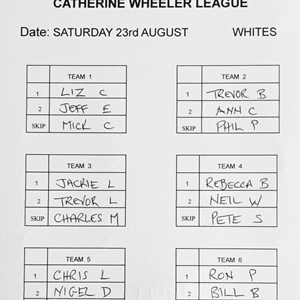 CATHERINE WHEELER LEAGUE
Date: SATURDAY 23rd AUGUST WHITES
TEAM 1
1 LIZ C
2 JEFF E
SKIP MICK C
TEAM 2
1 TREVOR B
2 ANN C
SKIP PHIL P
TEAM 3
1 JACKIE L
2 TREVOR L
SKIP CHARLES M
TEAM 4
1 REBECCA B
2 NEIL W
SKIP PETE S
TEAM 5
1 CHRIS L
2 NIGEL D
TEAM 6
1 RON P
2 BILL B